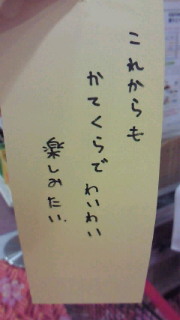 これからも
かてくらでわいわい
楽しみたい.